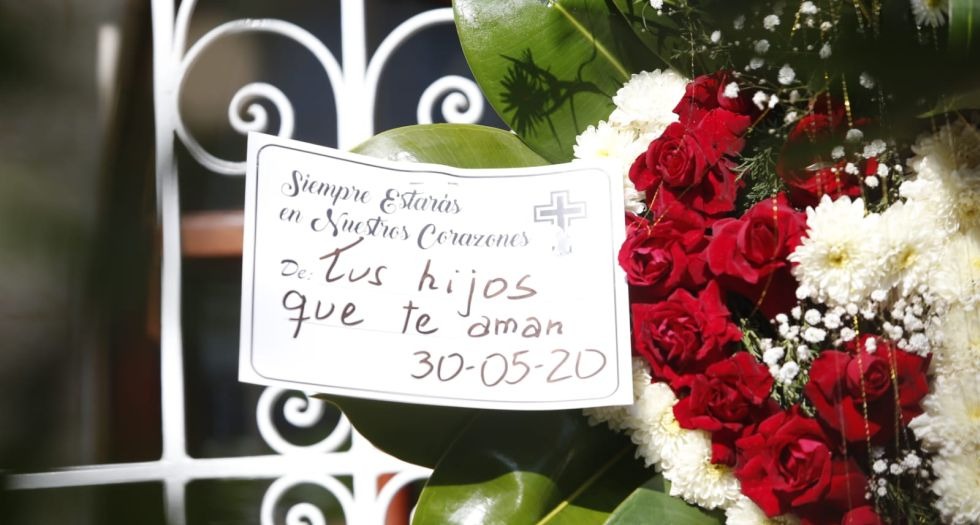 Siempre Estarás
en Nuestros Corazones
De: Tus hijos
que te aman
30-05-20